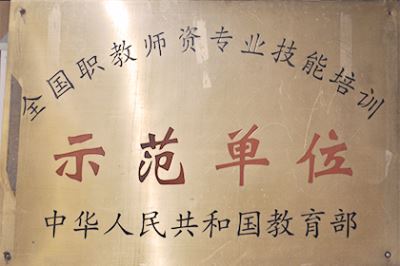 全国职教师资专业技能培训
示范单位
中华人民共和国教育部